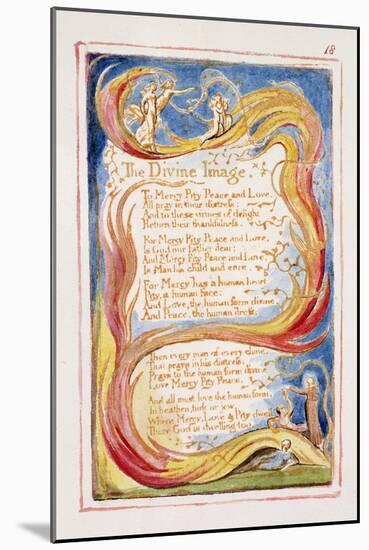 18
The Divine Image.
To Mercy Pity Peace and Love,
All pray in their distress:
And to these virtues of delight
Return their thankfulness.
For Mercy Pity Peace and Love,
Is God our father dear:
And Mercy Pity Peace and Love,
Is Man his child and care.
For Mercy has a human heart
Pity, a human face:
And Love, the human form divine,
And Peace, the human dress.
Then every man of every clime,
That prays in his distress,
Prays to the human form divine
Love Mercy Pity Peace.
And all must love the human form,
In heathen, turk or jew.
Where Mercy, Love & Pity dwell
There God is dwelling too.